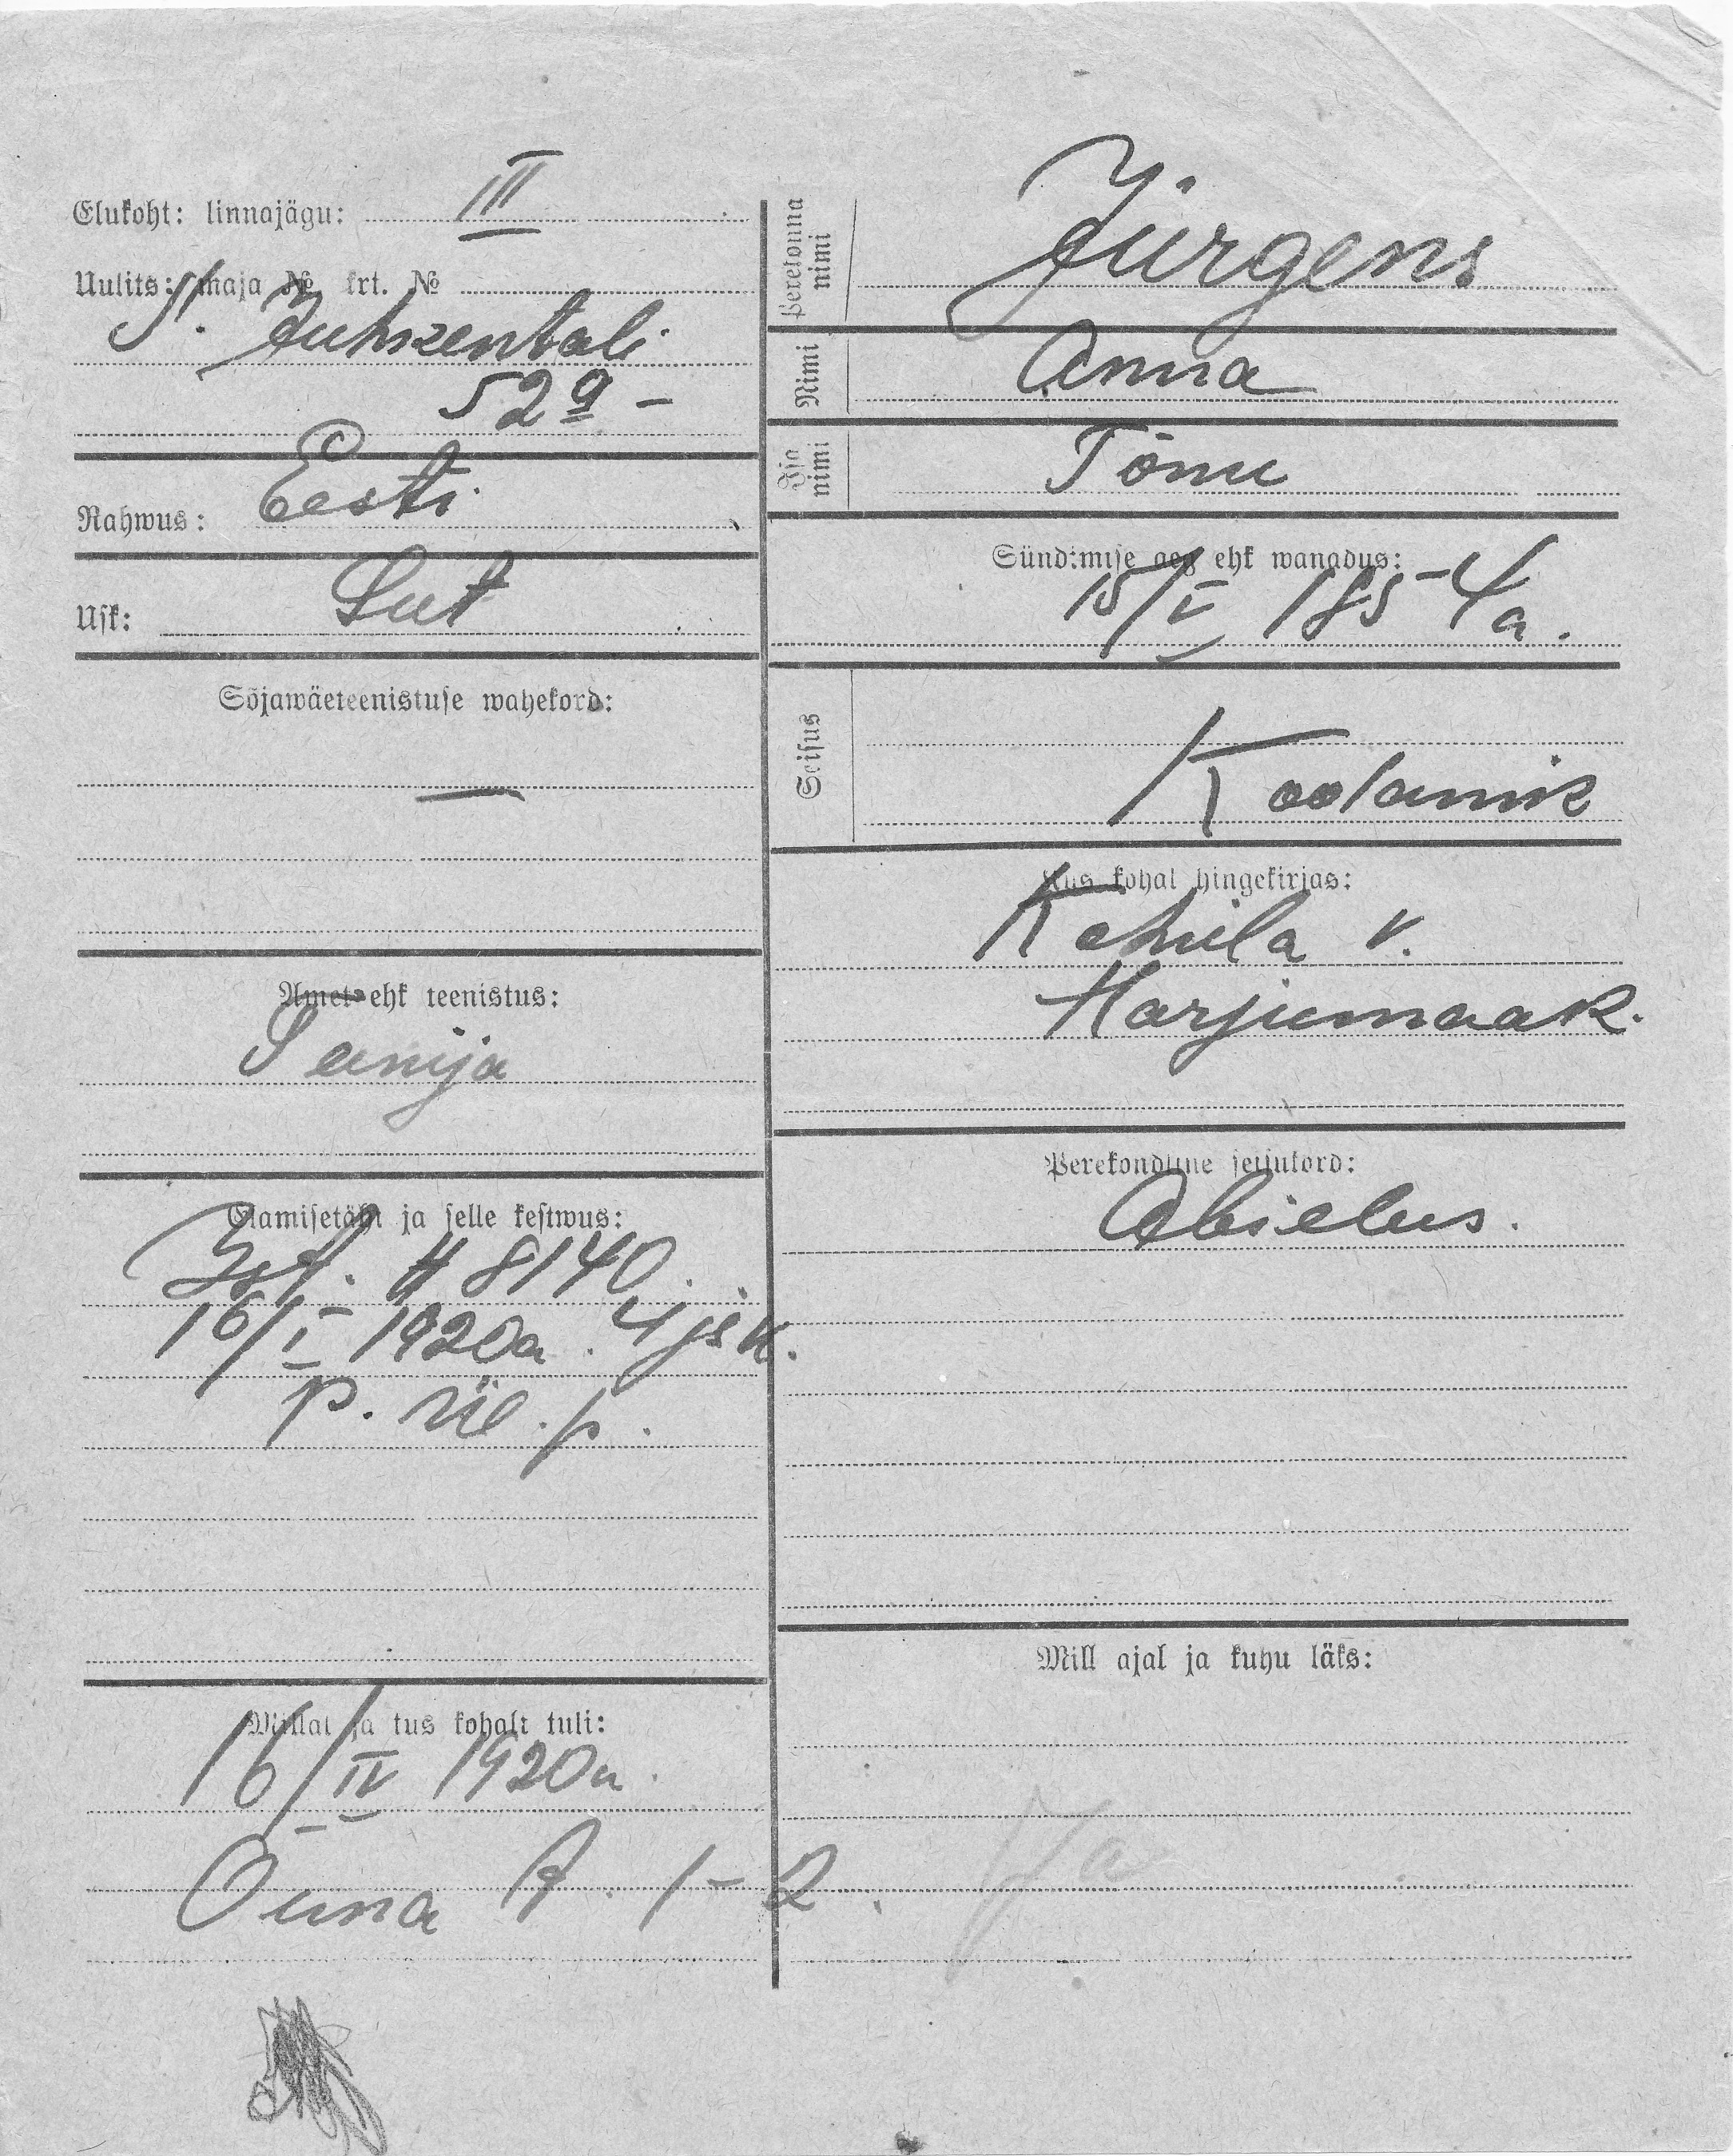 Elukoht: linnajägu: III
Uulits: maja № krt. №
S. Juhkentali
52a –
Rahwus: Eesti
Usk: Lut
Sõjawäeteenistuse wahekord:
—
Amet ehk teenistus:
Elamisetäht ja selle kestwus:
№ 8140.
16/I 1920a. 4 jsk.
Millal ja kus kohalt tuli:
16/IV 1920a.
Õuna 1–2.
Perekonna nimi Jürgens
Nimi Anna
Isa nimi Tõnu
Sündimise aeg ehk wanadus:
15/V 1854a.
Seisus
Koolanik
Kus kohal hingekirjas:
Kohila v.
Harjumaak.
Perekondline seisukord:
Abielus.
Mill ajal ja kuhu läks:
Ja